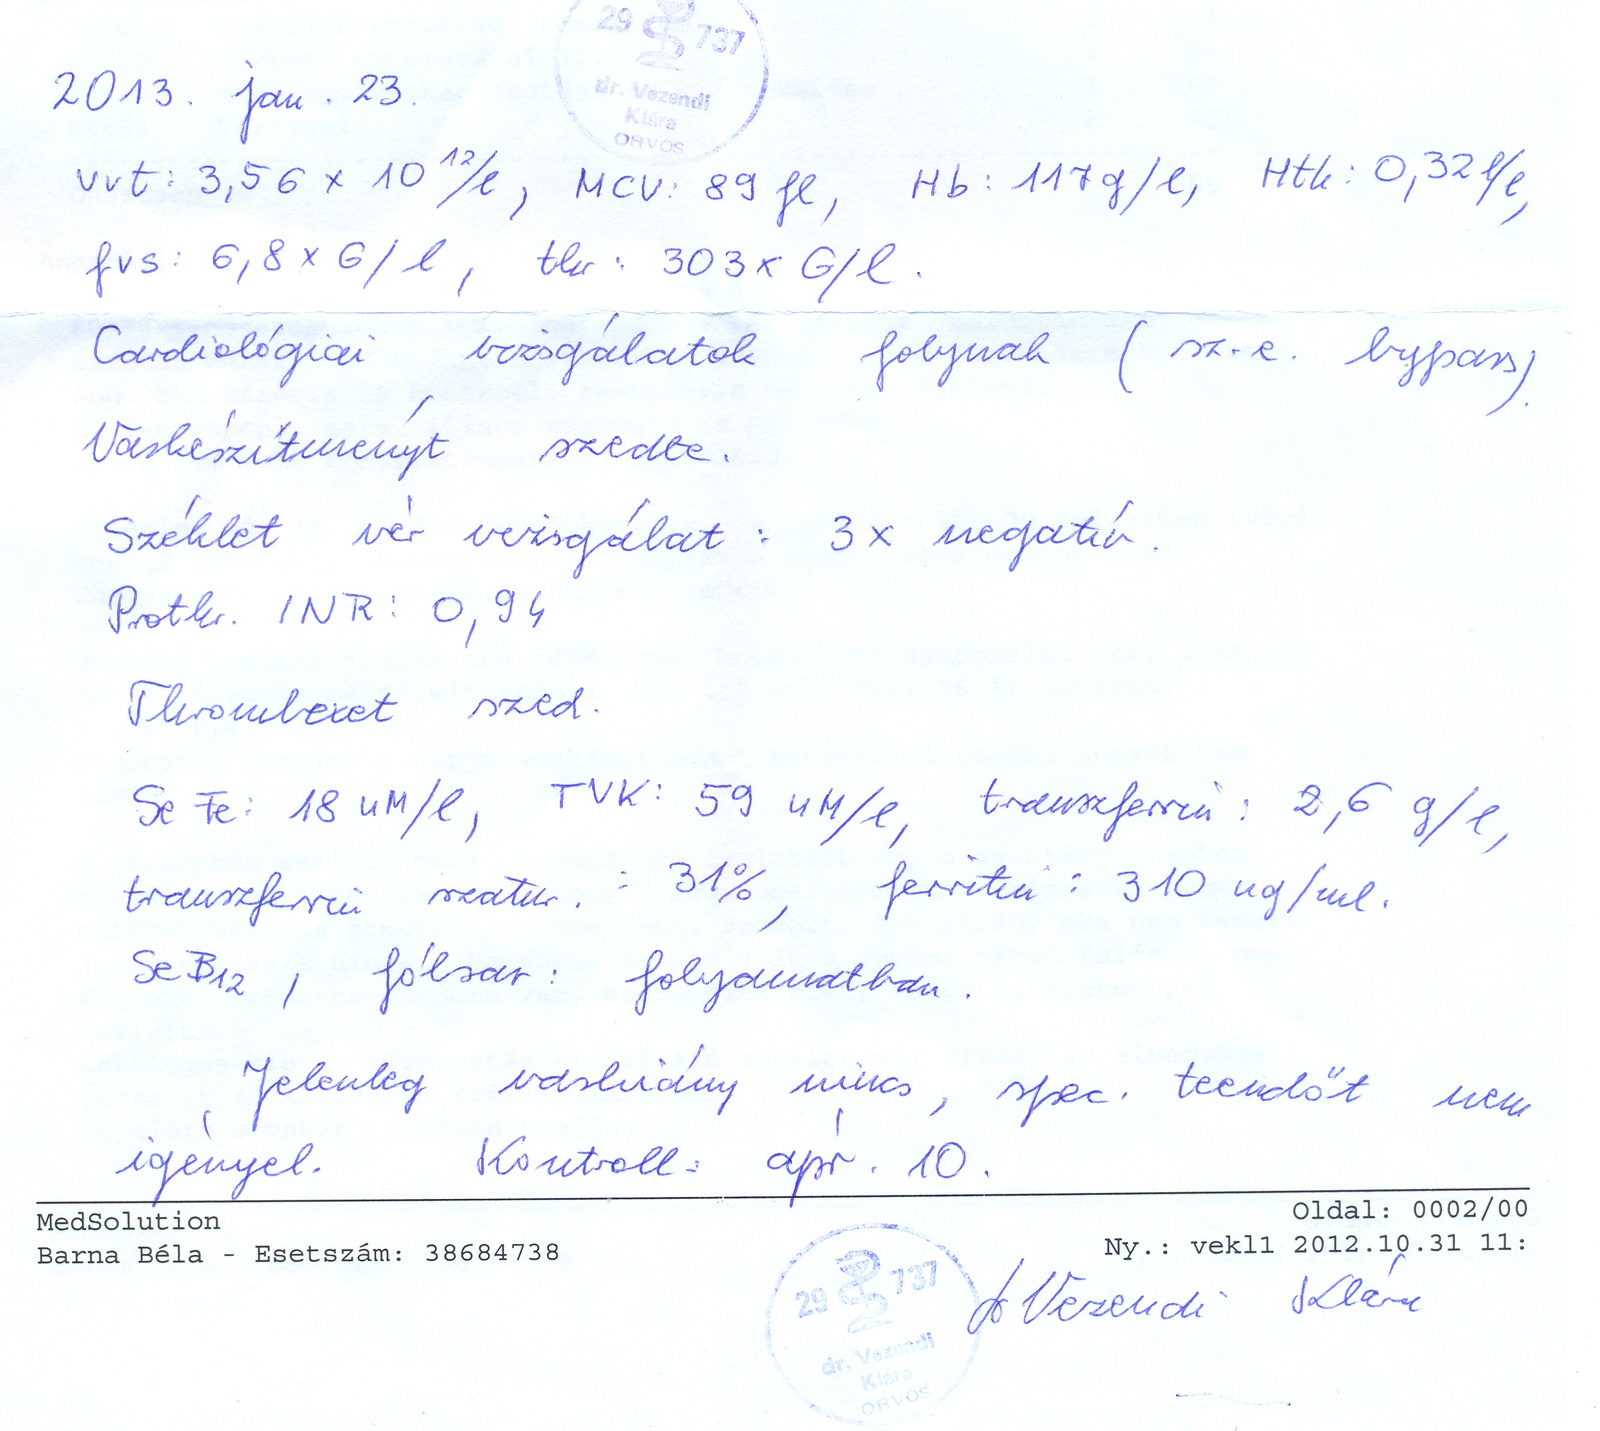 29 737
dr. Vezendi
Klára
ORVOS
2013. jan. 23.
vvt: 3,56 x 10¹²/l, MCV: 89 fl, Hb: 117 g/l, Htk: 0,32 l/l,
fvs: 6,8 x G/l, tkr: 303 x G/l.
Cardiológiai vizsgálatok folynak (sz.e. bypass).
Vaskészítményt szedte.
Széklet vér vizsgálat: 3x negatív.
Protkr. INR: 0,94
Thrombexet szed.
Se Fe: 18 uM/l, TVK: 59 uM/l, transzferrin: 2,6 g/l,
transzferrin szatur.: 31%, ferritin: 310 ng/ml.
Se B12, fólsav: folyamatban.
Jelenleg vashiány nincs, spec. teendőt nem
igényel. Kontroll: ápr. 10.
MedSolution Oldal: 0002/00
Barna Béla - Esetszám: 38684738 Ny.: vekl1 2012.10.31 11:
29 737
dr. Vezendi
Klára
ORVOS
dr Vezendi Klára